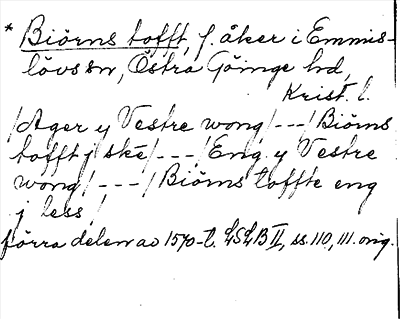 * Biörns tofft, f. åker i Emmis-
lövs sn, Östra Göinge hd,
Krist. l.
/Ager y Vestre wong/---/Biörns
tofft j ske/---/Eng y Vestre
wong/---/Biörns toffte eng
j less/
förra delen av 1570-t. LSLB II, ss. 110, 111. orig.